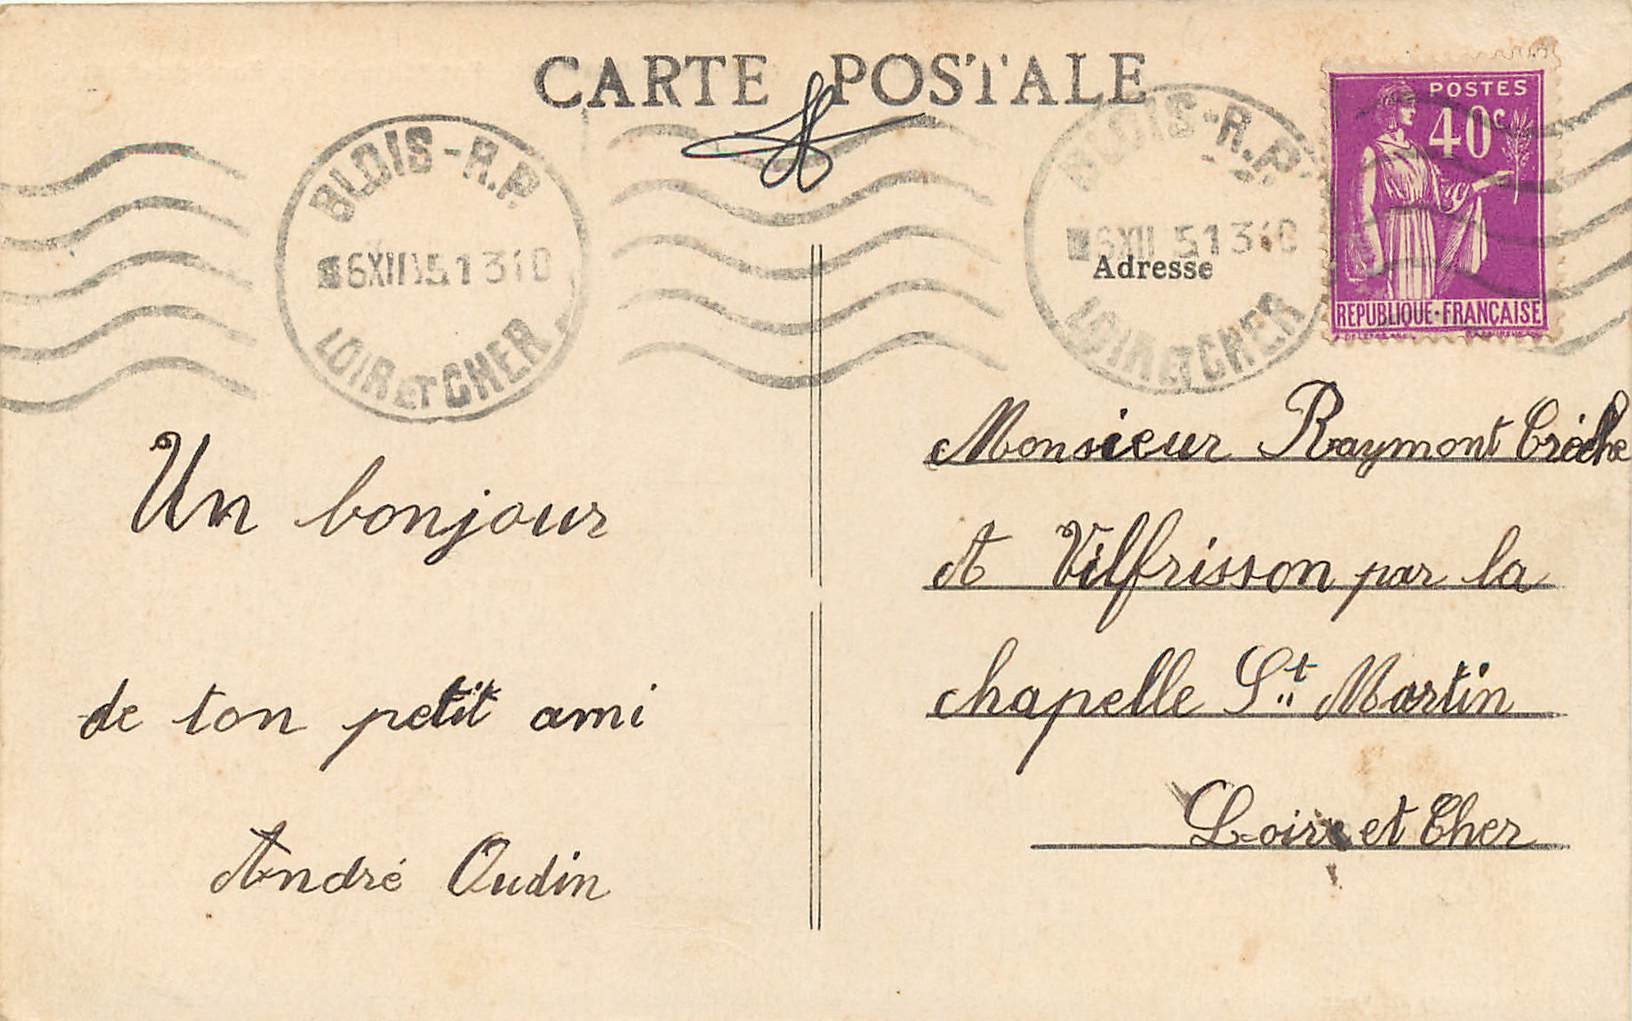 CARTE POSTALE
BLOIS-R.P.
6XII 51310
LOIR ET CHER
BLOIS-R.P.
6XII 51310
LOIR ET CHER
POSTES
40c
REPUBLIQUE·FRANÇAISE
Adresse
Un bonjour
de ton petit ami
André Oudin
Monsieur Raymont
A Vilfrisson par la
chapelle St Martin
Loir et Cher